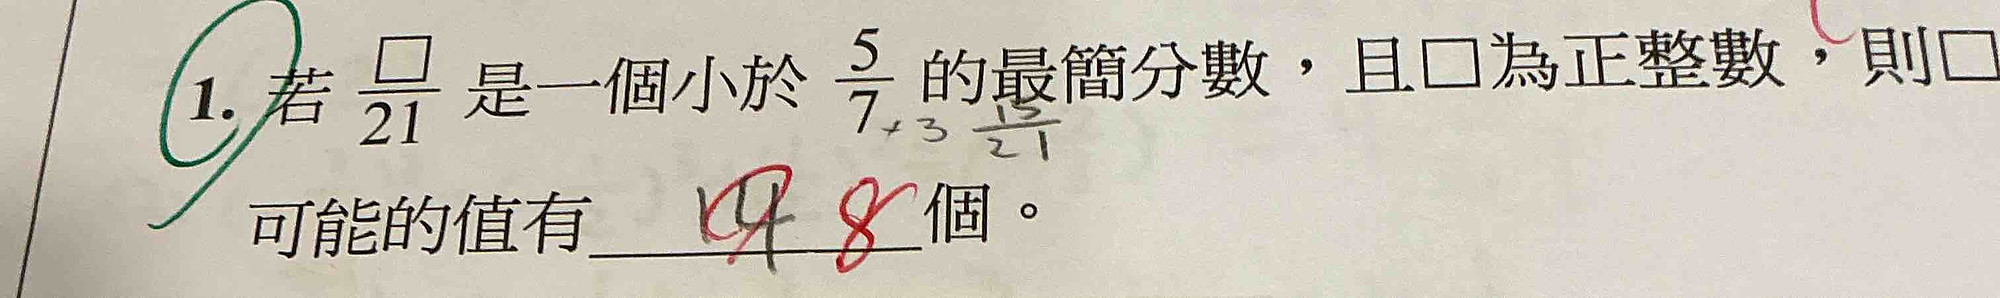 1. 若 □/21 是一個小於 5/7 的最簡分數，且□為正整數，則□
×3 15/21
可能的值有 14 8 個。